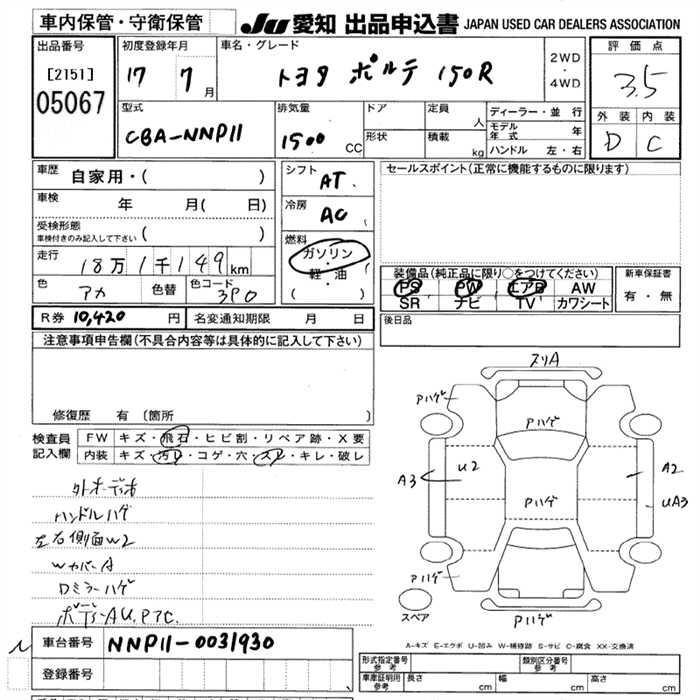 車内保管・守衛保管
JU 愛知 出品申込書 JAPAN USED CAR DEALERS ASSOCIATION
出品番号
[2151]
05067
初度登録年月
17 7 月
車名・グレード
トヨタ ポルテ 150R
2WD
・
4WD
評価点
3.5
外装 内装
D C
型式
CBA-NNP11
排気量
1500 CC
ドア
形状
定員 人
積載 kg
ディーラー・並行
モデル年式 年
ハンドル 左・右
車歴
自家用・( )
車検
年 月( 日)
受検形態
車検付きのみ記入して下さい ( )
走行
18万1千149km
色 アカ 色替 色コード 3P0
シフト
AT
冷房
AC
燃料
ガソリン
・
軽・油
( )
セールスポイント(正常に機能するものに限ります)
装備品(純正品に限り○をつけてください)
PS PW エアB AW
SR ナビ TV カワシート
新車保証書
有・無
R券 10,420 円 名変通知期限 月 日
後日品
注意事項申告欄(不具合内容等は具体的に記入して下さい)
修復歴 有(箇所 )
検査員記入欄
FW キズ・飛石・ヒビ割・リペア跡・X要
内装 キズ・汚レ・コゲ・穴・スレ・キレ・破レ
外オーディオ
ハンドルハゲ
左右側面W2
WカバーA
ロミラーハゲ
ボディーAU,PTC.
ヌリA
Pハゲ
Pハゲ
A3
U2
Pハゲ
A2
UA3
Pハゲ
Pハゲ
スペア
Pハゲ
A-キズ E-エクボ U-凹み W-補修跡 S-サビ C-腐食 XX-交換済
車台番号 NNP11-0031930
登録番号
形式指定番号 参考
類別区分番号 参考
車庫証明用 参考
長さ cm
幅 cm
高さ cm